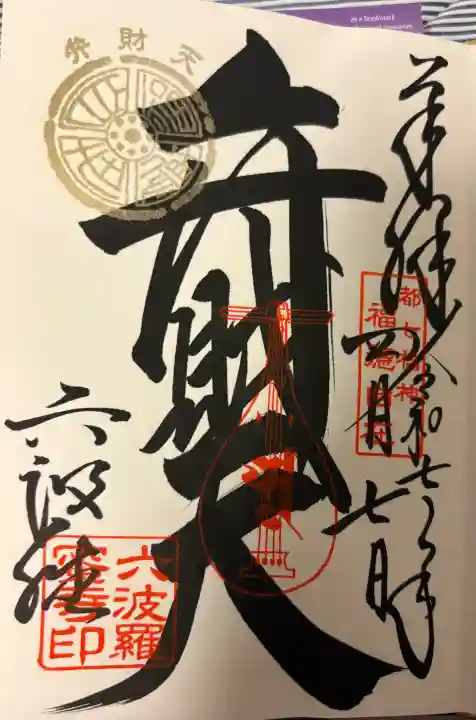 as a bookmark
奉拝
令和七年
四月七日
都七福神
福徳自在
弁財天
弁財天
六波羅
六波羅
蜜寺印